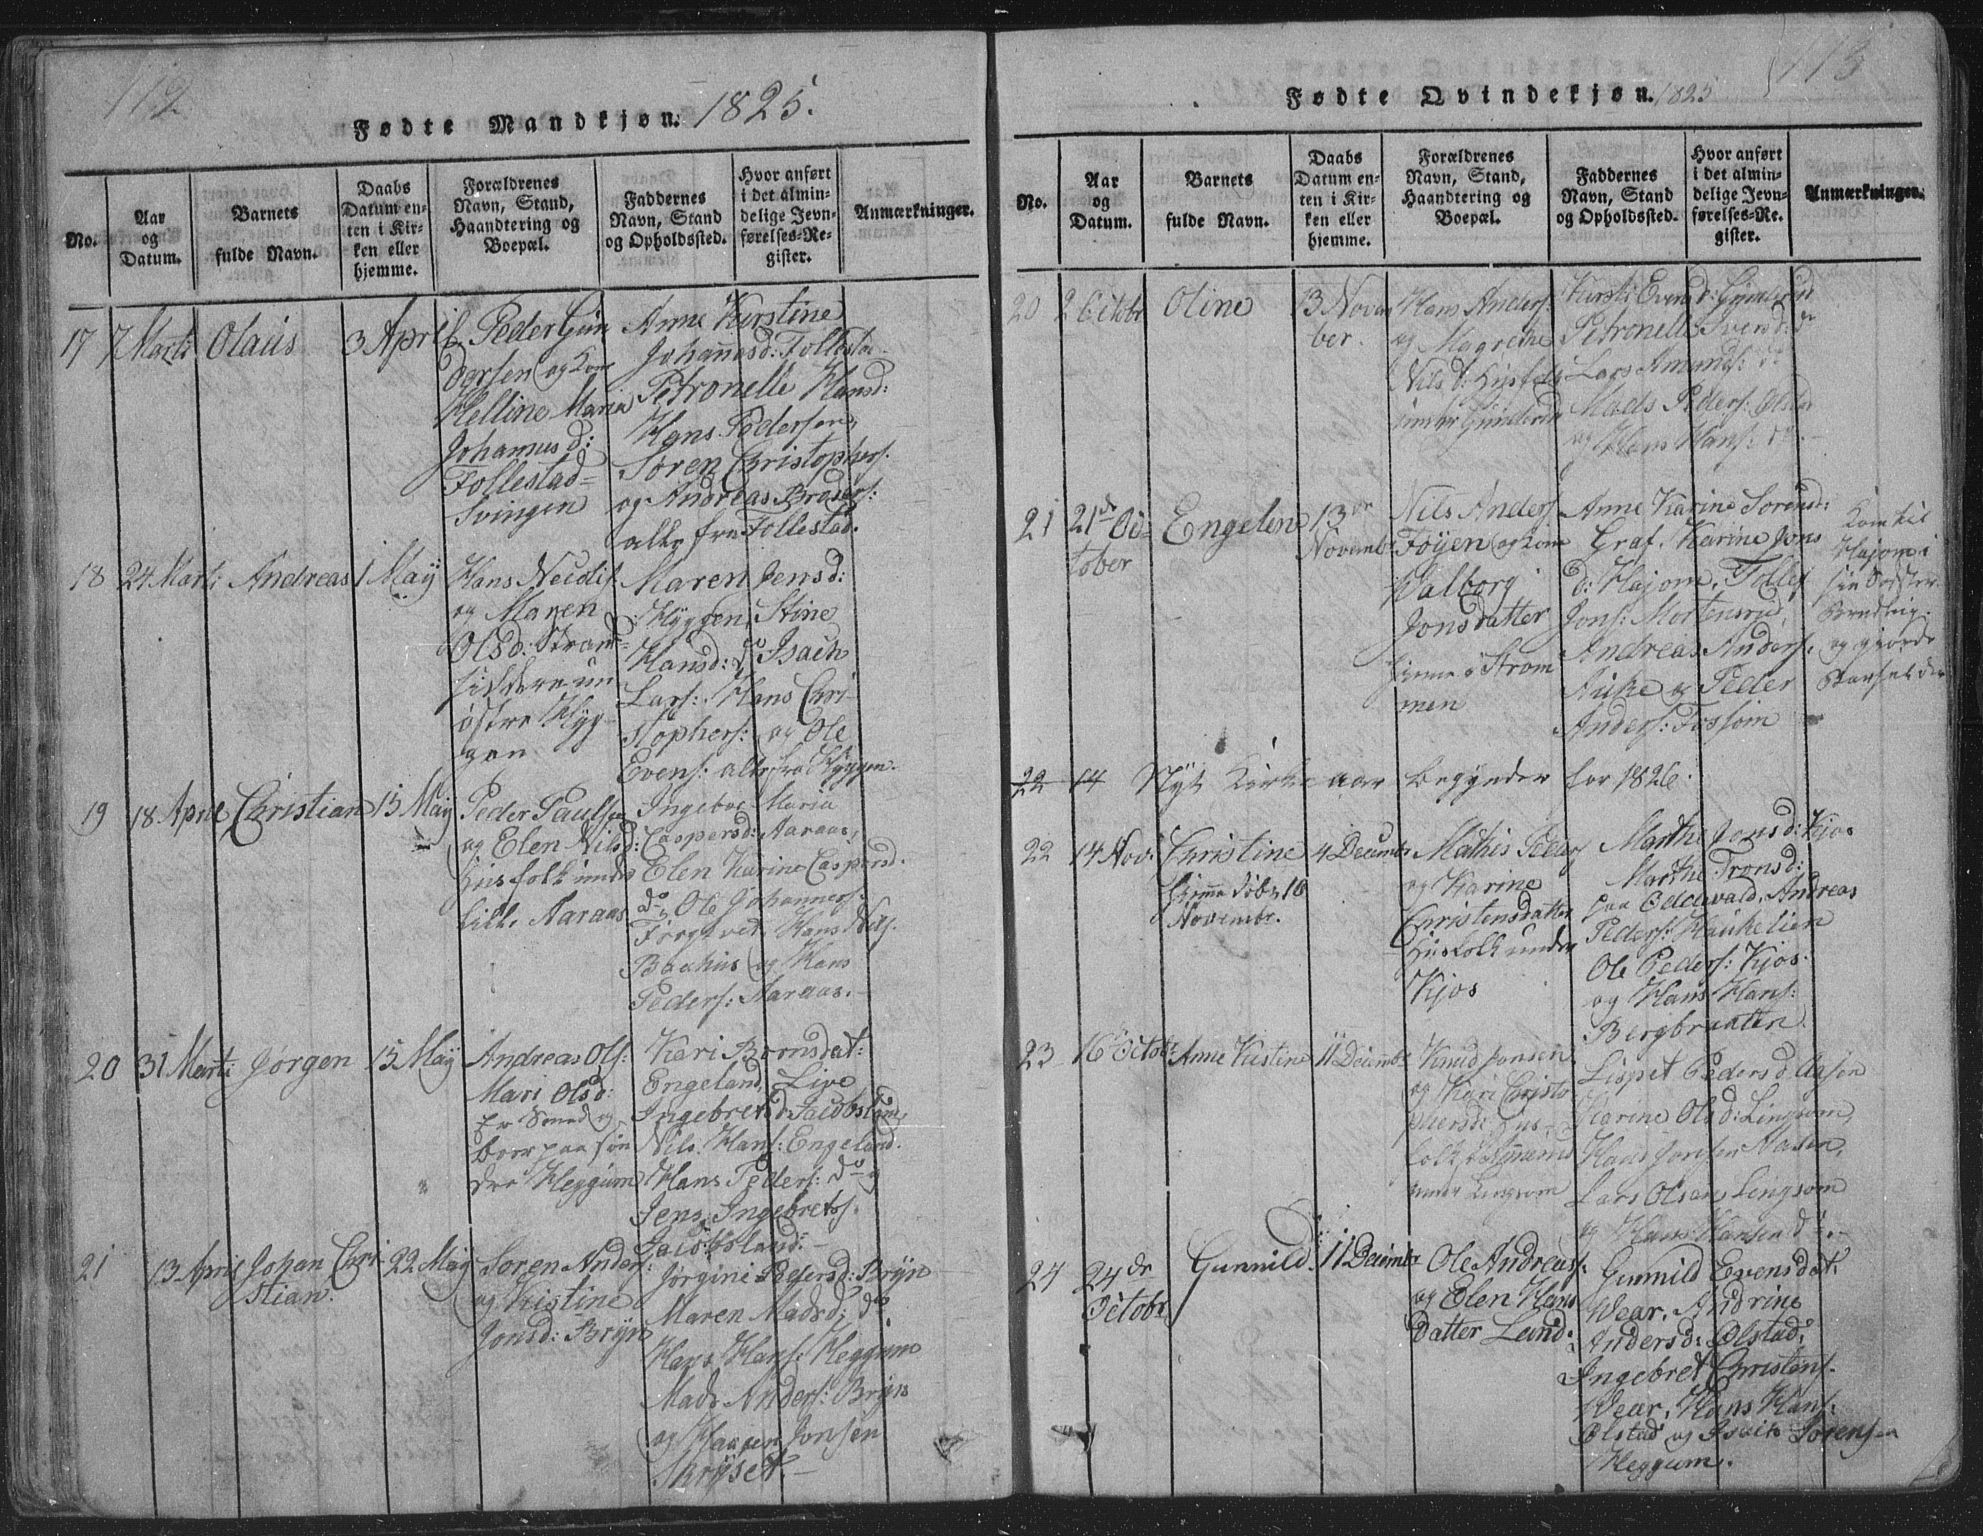 112
Fødte Mandkjøn. 1825.
No.
Aar
og
Datum.
Barnets
fulde Navn.
Daabs
Datum en-
ten i Kir-
ken eller
hjemme.
Forældrenes
Navn, Stand,
Haandtering og
Boepæl.
Faddernes
Navn, Stand
og Opholdssted.
Hvor anført
i det almin-
delige Jevn-
førelses-Re-
gister.
Anmærkninger.
17
7 Marti
Olaus
3 April
Peder Gun
Ogrsen og Kone
Helline Maria
Johannesd:
Follestad=
Svingen
Anne Kirstine
Johannesd: Follestad
Petronelle Hansd:
Hans Pedersen,
Søren Christophers:
og Andreas Braders:
alle fra Follestad.
18
24 Marti
Andreas
1 May
Hans
og Maren
Olsd: Strand=
siddere un
østre Hyg=
gen
Maren Jensd:
Hyggen, Stine
Hansd: do Isach
Lars: Hans Chri-
stophers: og Ole
Evens: alle fra Hyggen.
19
18 April
Christian
15 May
Peder Paulsen
og Elen Nilsd:
Huusfolk under
Lille Aaraas
Ingebor Maria
Caspersd: Aaraas,
Elen Karine Caspersd.
do, Ole Johannes:
Hans Nils.
Baahus og Hans
Peders: Aaraas.
20
31 Marti
Jørgen
15 May
Andreas Ols:
Mari Olsd:
Er Smed og
boer paa søn
dre Heggum
Kari Børnsdat:
Engeland, Live
Ingebretsd Jacobsland,
Nils Hans: Engeland.
Hans Peders: do og
Jens Ingebrets.
Jacobsland.
21
13 April
Johan Chri-
stian.
22 May
Søren Anders:
og Kistine
Jonsd: Bryn
Jørgine Pedersd: Bryn
Maren Madsd: do
Hans Hans: Heggum
Mads Anders: Bryn
og Haagen Jonsen
Skryset.
113
Fødte Qvindekjøn. 1825
No.
Aar
og
Datum.
Barnets
fulde Navn.
Daabs
Datum en-
ten i Kir-
ken eller
hjemme.
Forældrenes
Navn, Stand,
Haandtering og
Boepæl.
Faddernes
Navn, Stand
og Opholdssted.
Hvor anført
i det almin-
delige Jevn-
førelses-Re-
gister.
Anmærkninger.
20
2 Octobr
Oline
13 Novem
ber.
Hans Anders:
og Magrethe
Nilsd: Husfolk
under Gunderud
Kirsti Evensd: Gunderud
Petronelle Svensd: do
Lars Amunds: do
Mads Peders: Olsta
og Hans Hans: do.
21
21de Oc=
tober
Engelen
13de
Novembr
Nils Anders
Foyen og kone
Walborg
Jonsdatter
hjemme i Strøm
men
Anne Karine Sørensd:
Graf. Karine Jons
d: Hajom, Tollef
Jons: Mortensrud,
Andreas Anders.
Auke og Peder
Anders: Fossom
Kom til
Hajom i
sin Søster
og giorde
Barsel der
22 14 Nyt Kirke aar begynder for 1826.
22
14 Nov:
Christine
hjemme døbt 16
Novembr.
4 Decembr
Mathis Peders
og Karine
Christensdatter
Huusfolk under
Kjos
Marthe Jonsd: Kjos
Marthe Tronsd:
paa Oddevald, Andreas
Peders: Haukelien
Ole Peders: Kjos.
og Hans Hans:
Bergbraaten.
23
16 Octobr:
Anne Kistine
11 Decembr
Knud Jonsen
og Kari Christo
phersd: Huus=
folk
under Lingsom
Lispet Pedersd Aasen
Karine Olsd: Lingsom,
Hans Jonsen Aasen,
Lars Olsen Lingsom
og Hans Hansen do.
24
24de
Octobr
Gunnild
11 Decembr
Ole Andreas:
og Elen Hans
datter Lund.
Gunnild Evensdat.
Wear, Andrine
Andersd: Ølstad,
Ingebret Christens.
Wear, Hans Hans:
Ølstad og Isach Sørensen
Heggum.